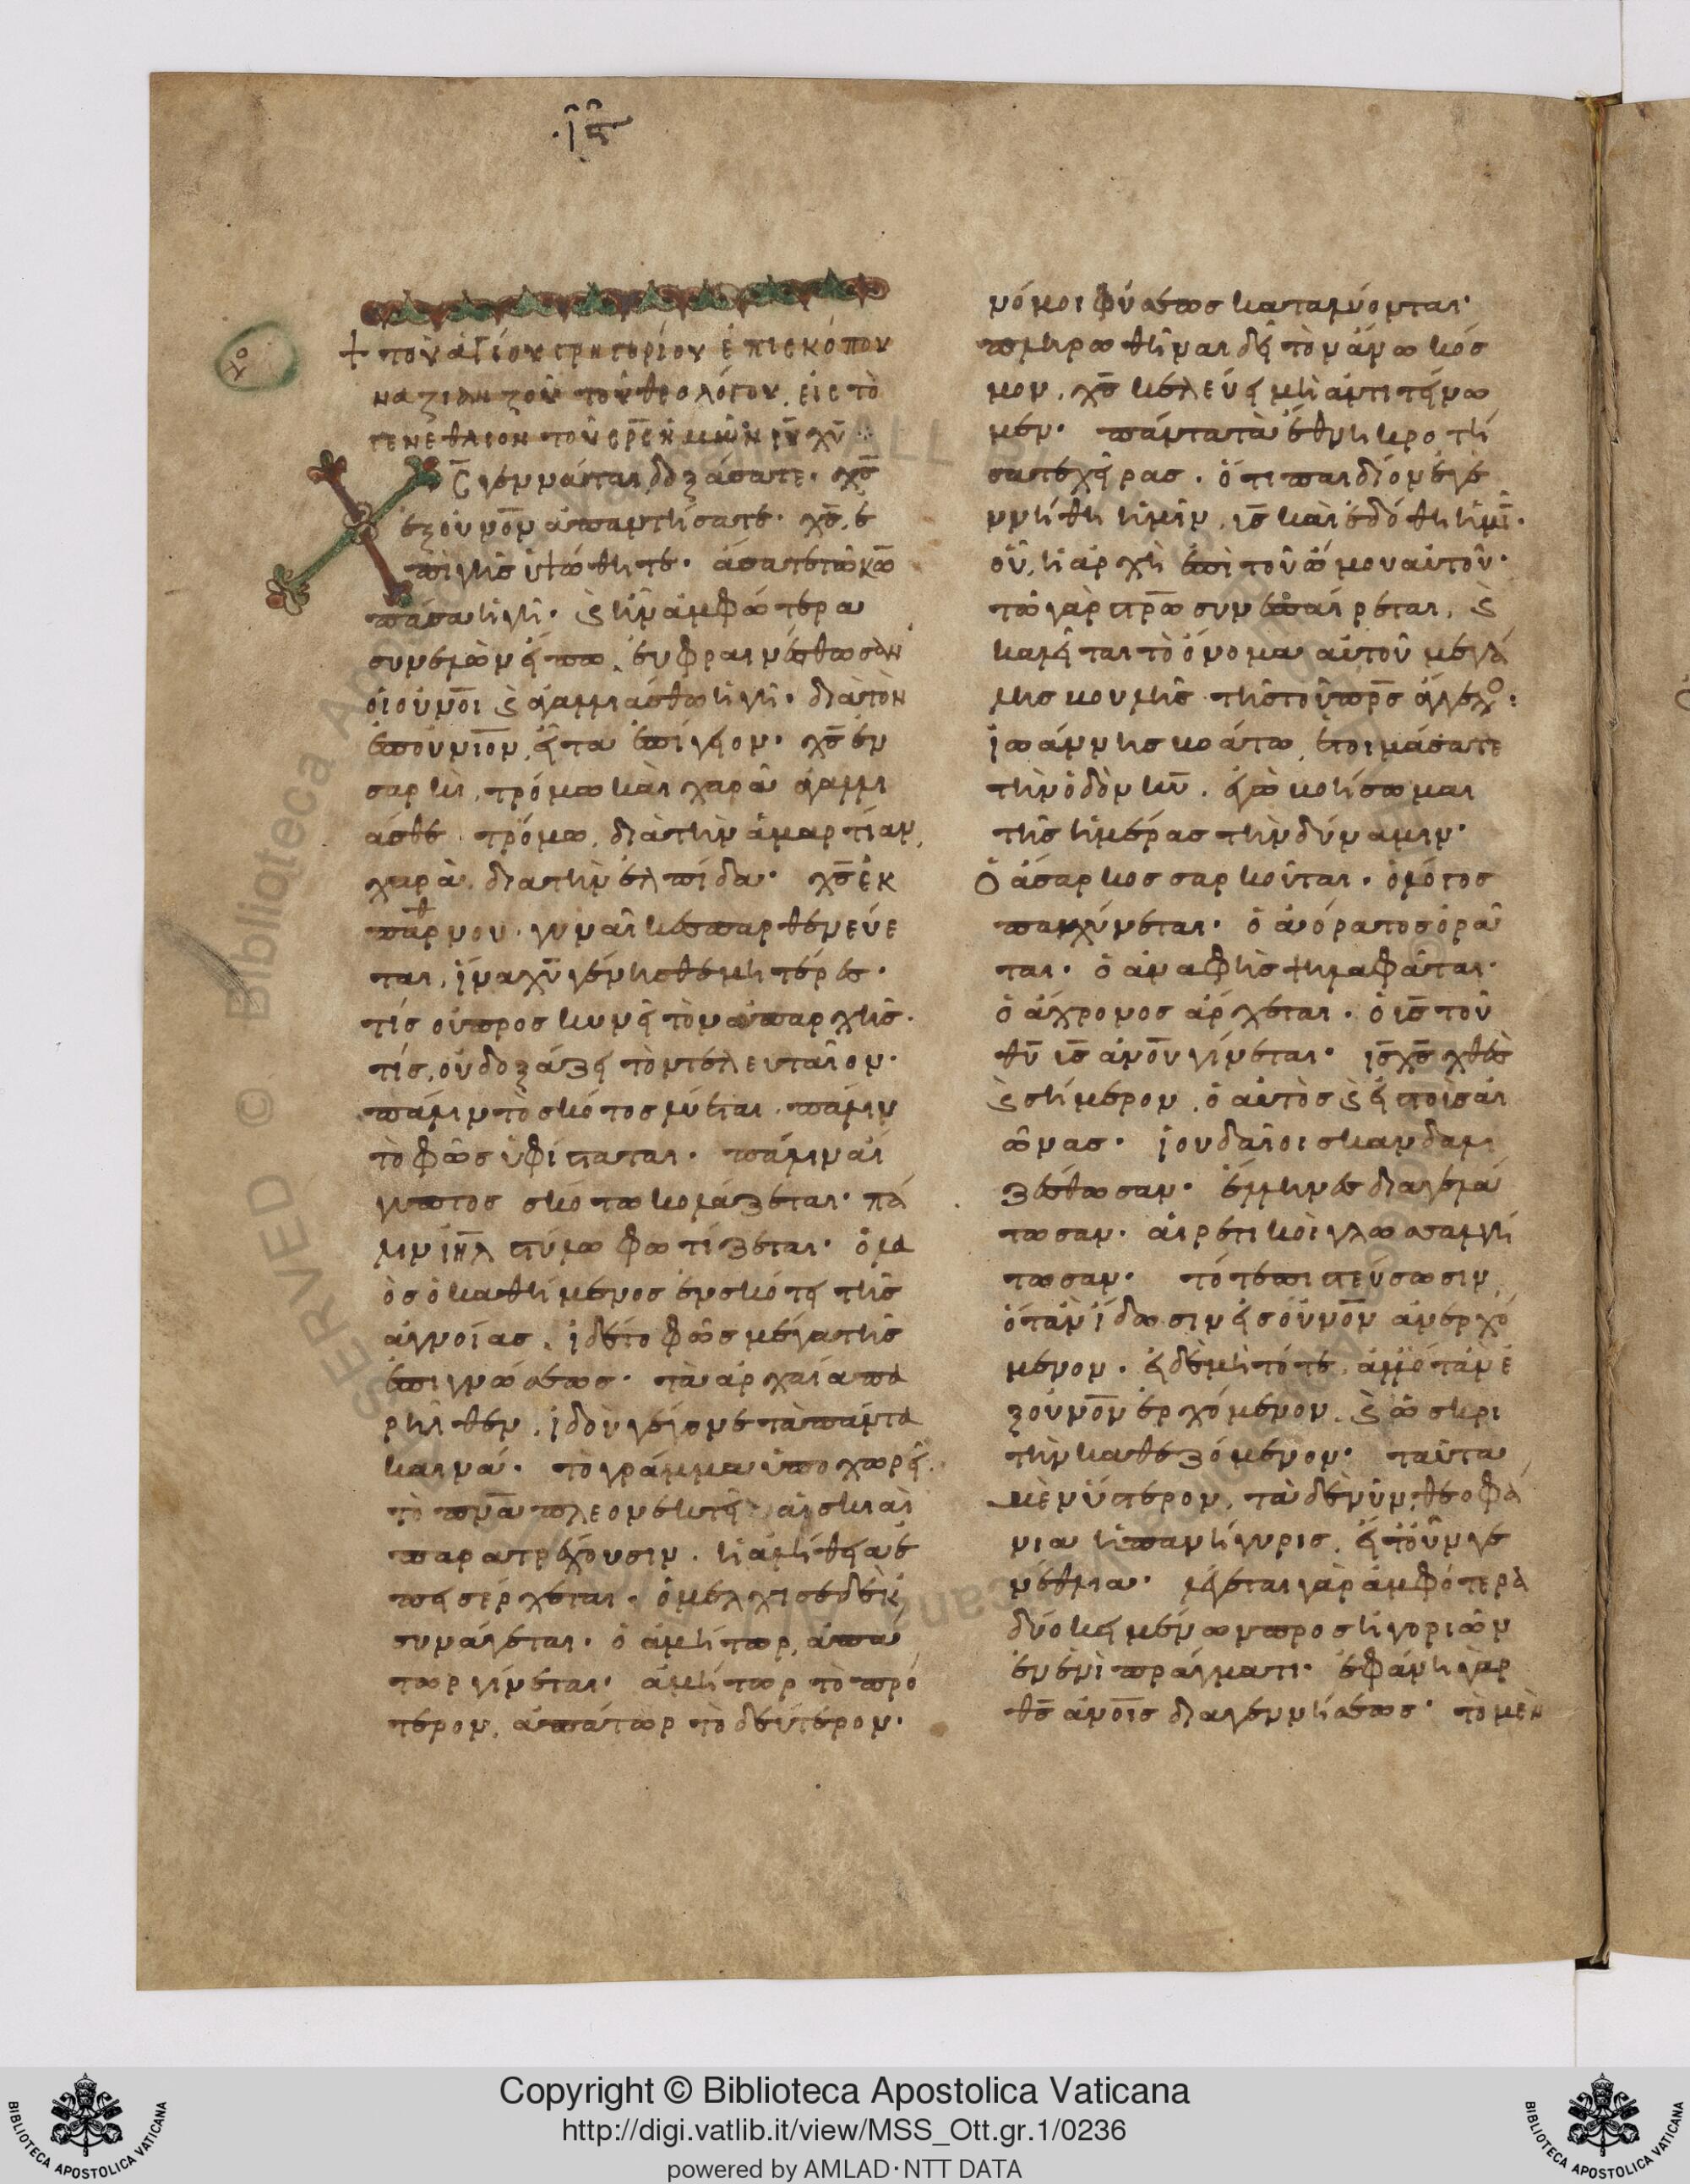 ·ιε·
+ τοῦ ἁγίου γρηγορίου ἐπισκόπου
ναζιανζοῦ τοῦ θεολόγου, εἰς τὸ
γενέθλιον τοῦ σρ̅ς ἡμῶν ιυ̅ χυ̅
Χ̅ς γεννᾶται, δοξάσατε· χς̅
ἐξ οὐνο̅ν ἀπαντήσατε· χς̅, ἐ
πὶ γῆς ὑψώθητε· ἄσατε τῶ κω̅
πᾶσα ἡ γῆ· ϗ ἵν' ἀμφότερα
συνελὼν εἴπω, εὐφραινέσθωσαν
οἱ οὐνο̅ι ϗ ἀγαλλιάσθω ἡ γῆ· διὰ τὸν
ἐπουνιο̅ν, εἶτα ἐπίγειον· χς̅ ἐν
σαρκὶ, τρόμω καὶ χαρᾶ ἀγαλλι
ᾶσθε· τρόμω, διὰ τὴν ἁμαρτίαν,
χαρὰ, δια τὴν ἐλπίδα· χς̅ ἐκ
παρθνου· γυναῖκες παρθενεύε
ται, ἵνα χυ̅ γένησθε μητέρες·
τίς οὐ προσκυνεῖ τὸν ἀπαρχῆς·
τίς, οὐ δοξάζει τὸν τελευταῖον·
πάλιν τὸ σκότος λύεται, πάλιν
τὸ φῶς ὑφίσταται· πάλιν αἴ
γυπτος σκότω κολάζεται· πά
λιν ιηλ̅ στύλω φωτίζεται· ὁ λα
ὸς ὁ καθήμενος ἐν σκότει τῆς
ἀγνοίας, ἰδέτο φῶς μέγα τῆς
ἐπιγνώσεως· τὰ ἀρχαῖα πα
ρῆλθεν, ἰδοὺ γέγονε τὰ πάντα
καινά· τὸ γράμμα ὑποχωρεῖ,
τὸ πνα̅ πλεονεκτεῖ· αἱ σκιαὶ
παρατρέχουσιν, ἡ ἀλήθεια ἐ
πεισέρχεται· ὁ μελχισεδὲκ
συνάγεται· ὁ ἀμήτωρ, ἀπά
τωρ γίνεται· ἀμήτωρ τὸ πρό
τερον, ἀπάτωρ τὸ δεύτερον·
νόμοι φύσεως καταλύονται·
πληρωθῆναι δεῖ τὸν ἄνω κόσ
μον, χς̅ κελεύει μὴ ἀντιτείνω
μεν· πάντα τὰ ἔθνη κροτή
σατε χεῖρας· ὅτι παιδίον ἐγε
ννήθη ἡμῖν, ις̅ καὶ ἐδόθη ἡμῖ̅·
οὗ, ἡ ἀρχὴ ἐπὶ τοῦ ὤμου αὐτοῦ·
τῶ γὰρ στρω̅ συνεπαίρεται, ϗ
καλεῖται τὸ ὄνομα αὐτοῦ μεγά
λης βουλῆς τῆς τοῦ πρς̅ ἄγγελο:
ἰωάννης βοάτω, ἑτοιμάσατε
τὴν ὁδὸν κυ̅· ἐγὼ βοήσωμαι
τῆς ἡμέρας τὴν δύναμιν·
Ὁ ἄσαρκος σαρκοῦται· ὁ λόγος
παχύνεται· ὁ ἀόρατος ὁρᾶ
ται· ὁ ἀναφὴς ψηλαφᾶται·
ὁ ἄχρονος ἄρχεται· ὁ ις̅ τοῦ
θυ̅ ις̅ ἀνο̅υ γίνεται· ις̅ χς̅ χθὲς
ϗ σήμερον, ὁ αὐτὸς ϗ εἰς τοὺς αἰ
ῶνας· ἰουδαῖοι σκανδαλι
ζέσθωσαν· ἕλληνες διαγελά
τωσαν· αἱρετικοὶ γλωσσαλγή
τωσαν· τότε πιστεύσωσιν,
ὅταν ἴδωσιν εἰς οὐνο̅ν ἀνερχό
μενον· εἰ δὲ μὴ τότε, ἀλλ' ὅταν ἐ
ξ οὐνο̅ν ἐρχόμενον, ϗ ὡς κρι
τὴν καθεζόμενον· ταῦτα
μὲν ὕστερον, τὰ δὲ νῦν, θεοφά
νια ἡ πανήγυρις, εἴτουν γε
νέθλια· λέγεται γὰρ ἀμφότερα
δύο κειμένων προσηγοριῶν
ἑνὲνὶ πράγματι· ἐφάνη γὰρ
θς̅ ἀνο̅ις διαγεννήσεως· τὸ μὲν
Copyright © Biblioteca Apostolica Vaticana
http://digi.vatlib.it/view/MSS_Ott.gr.1/0236
powered by AMLAD·NTT DATA
BIBLIOTECA APOSTOLICA VATICANA
BIBLIOTECA APOSTOLICA VATICANA